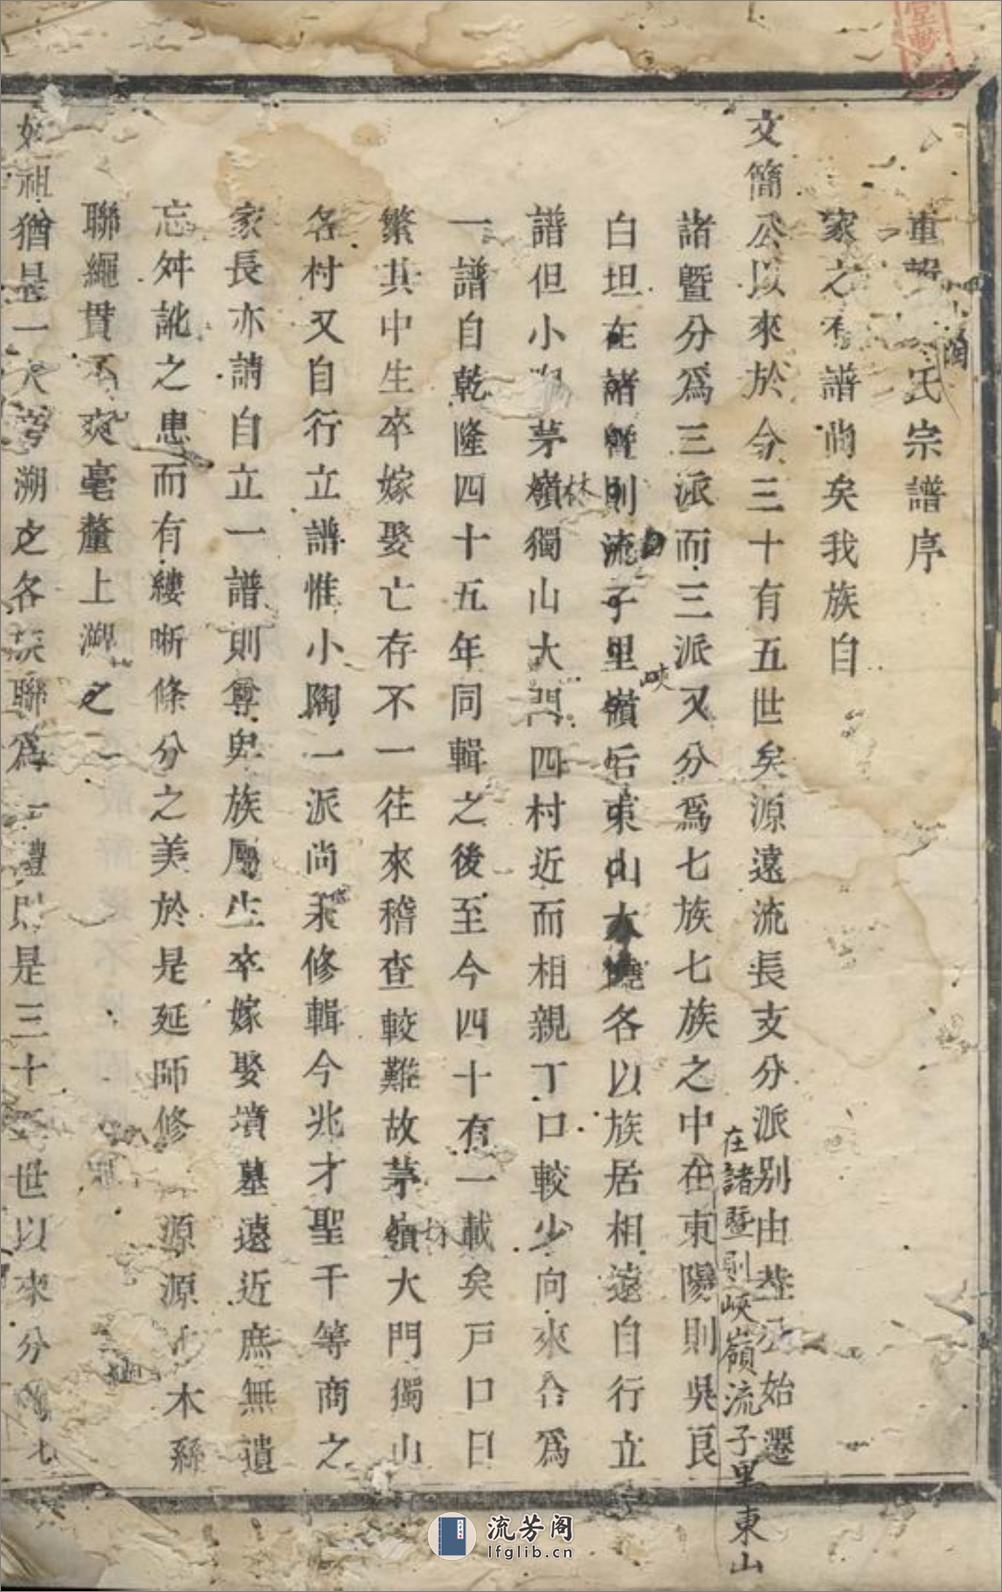 重氏宗譜序
家之有譜尚矣我族自
文簡公以來於今三十有五世矣源遠流長支分派別由基公始遷
諸暨分爲三派而三派又分爲七族七族之中在東陽則吳良
在諸暨則峽嶺流子里東山
白坦在諸暨則流子里嶺后東山大嶢各以族居相遠自行立
峽
譜但小茅嶺獨山大門四村近而相親丁口較少向來合爲
林
一譜自乾隆四十五年同輯之後至今四十有一載矣戸口日
繁其中生卒嫁娶亡存不一往來稽查較難故茅嶺大門獨山
林
各村又自行立譜惟小陶一派尚未修輯今兆才聖千等商之
家長亦請自立一譜則尊卑族屬生卒嫁娶墳墓遠近庶無遺
忘舛訛之患而有縷晰條分之美於是延師修源源木繇
聯繩貫不爽毫釐上溯之一
始祖猶是一人旁溯之各族聯爲一體則是三十世以來分七
流芳阁
lfglib.cn